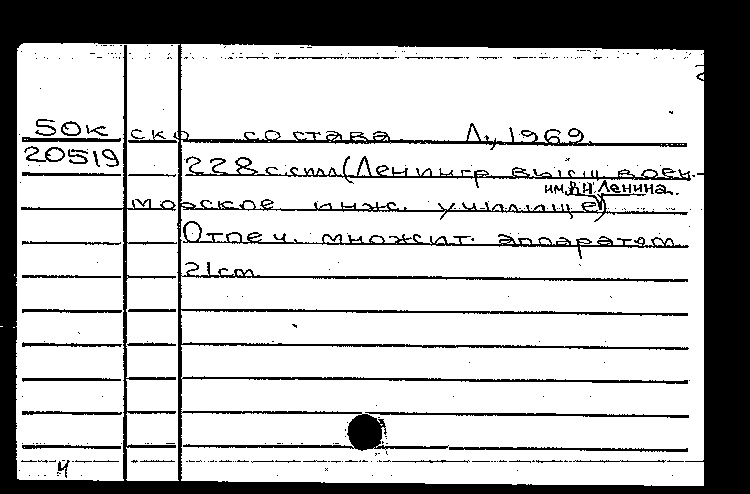 50к ско состава Л., 1969.
20519 228 с. с илл. (Ленингр. высш. воен.-
им. В.И. Ленина.
морское инж. училище)
Отпеч. множит. аппаратом
21 см.
4